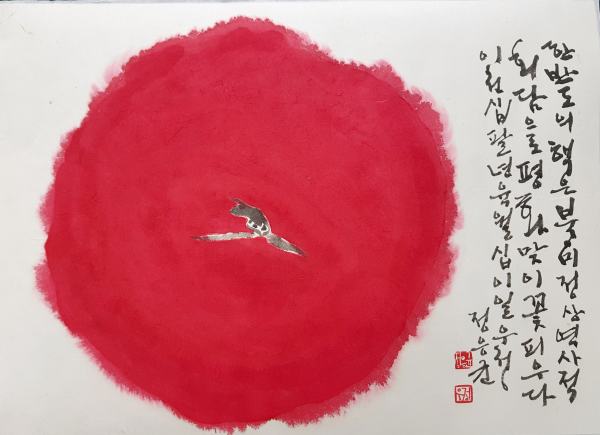 한반도의 핵은 북미정상 역사적
회담으로 평화맞이 꽃피우다
이천십팔년 육월 십이일 우천
정응균